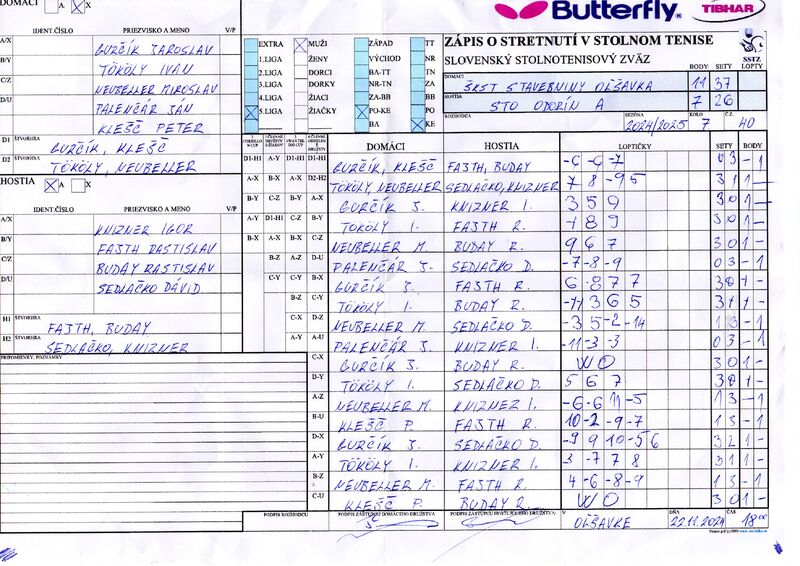 DOMÁCI A X
IDENT.ČÍSLO PRIEZVISKO A MENO V/P
A/X GURČÍK JAROSLAV
B/Y TÖKÖLY IVAN
C/Z NEUBELLER MIROSLAV
D/U PALENČÁR JÁN
KLEŠČ PETER
D1 ŠTVORHRA GURČÍK, KLEŠČ
D2 ŠTVORHRA TÖKÖLY, NEUBELLER
HOSTIA A X
IDENT.ČÍSLO PRIEZVISKO A MENO V/P
A/X KNIZNER IGOR
B/Y FAJTH RASTISLAV
C/Z BUDAY RASTISLAV
D/U SEDLAČKO DÁVID
H1 ŠTVORHRA FAJTH, BUDAY
H2 ŠTVORHRA SEDLAČKO, KNIZNER
PRIPOMIENKY, POZNÁMKY
EXTRA MUŽI ZÁPAD TT
1.LIGA ŽENY VÝCHOD NR
2.LIGA DORCI BA-TT TN
3.LIGA DORKY NR-TN ZA
4.LIGA ŽIACI ZA-BB BB
5.LIGA ŽIAČKY PO-KE PO
BA KE
Butterfly TIBHAR
ZÁPIS O STRETNUTÍ V STOLNOM TENISE
SLOVENSKÝ STOLNOTENISOVÝ ZVÄZ
SSTZ
BODY SETY LOPTY
DOMÁCI ŠKST STAVEBNINY OLŠAVKA 11 37
HOSTIA STO ODORÍN A 7 26
ROZHODCA SEZÓNA 2024/2025 KOLO 7 Č.Z. 40
DOMÁCI HOSTIA LOPTIČKY SETY BODY
D1-H1 A-Y A-X D1-H1 GURČÍK, KLEŠČ FAJTH, BUDAY -6 -6 -7 0 3 - 1
A-X B-X B-Y D2-H2 TÖKÖLY, NEUBELLER SEDLAČKO, KNIZNER 7 8 -9 5 3 1 1 -
B-Y C-Z C-Z A-X GURČÍK J. KNIZNER I. 3 5 9 3 0 1 -
A-Y D1-H1 C-Z B-Y TÖKÖLY I. FAJTH R. 1 8 9 3 0 1 -
B-X A-X B-X C-Z NEUBELLER M. BUDAY R. 9 6 7 3 0 1 -
B-Z A-Z D-U PALENČÁR J. SEDLAČKO D. -7 -8 -9 0 3 - 1
C-Y B-X A-Y GURČÍK J. FAJTH R. 6 -8 7 7 3 1 1 -
B-Z C-Y B-Z TÖKÖLY I. BUDAY R. -11 3 6 5 3 1 1 -
C-X D-Z NEUBELLER M. SEDLAČKO D. -3 5 -2 -14 1 3 - 1
A-Y A-U PALENČÁR J. KNIZNER I. -11 -3 -3 0 3 - 1
C-X GURČÍK J. BUDAY R. WO 3 0 1 -
D-Y TÖKÖLY I. SEDLAČKO D. 5 6 7 3 0 1 -
A-Z NEUBELLER M. KNIZNER I. -6 -6 11 -5 1 3 - 1
B-U KLEŠČ P. FAJTH R. 10 -2 -9 -7 1 3 - 1
D-X GURČÍK J. SEDLAČKO D. -9 9 10 -5 6 3 2 1 -
A-Y TÖKÖLY I. KNIZNER I. 3 -7 7 8 3 1 1 -
B-Z NEUBELLER M. FAJTH R. 4 -6 -8 -9 1 3 - 1
C-U KLEŠČ P. BUDAY R. WO 3 0 1 -
PODPIS ROZHODCU PODPIS ZÁSTUPCU DOMÁCEHO DRUŽSTVA PODPIS ZÁSTUPCU HOSŤUJÚCEHO DRUŽSTVA V OLŠAVKE DŇA 22.11.2024 ČAS 18 00